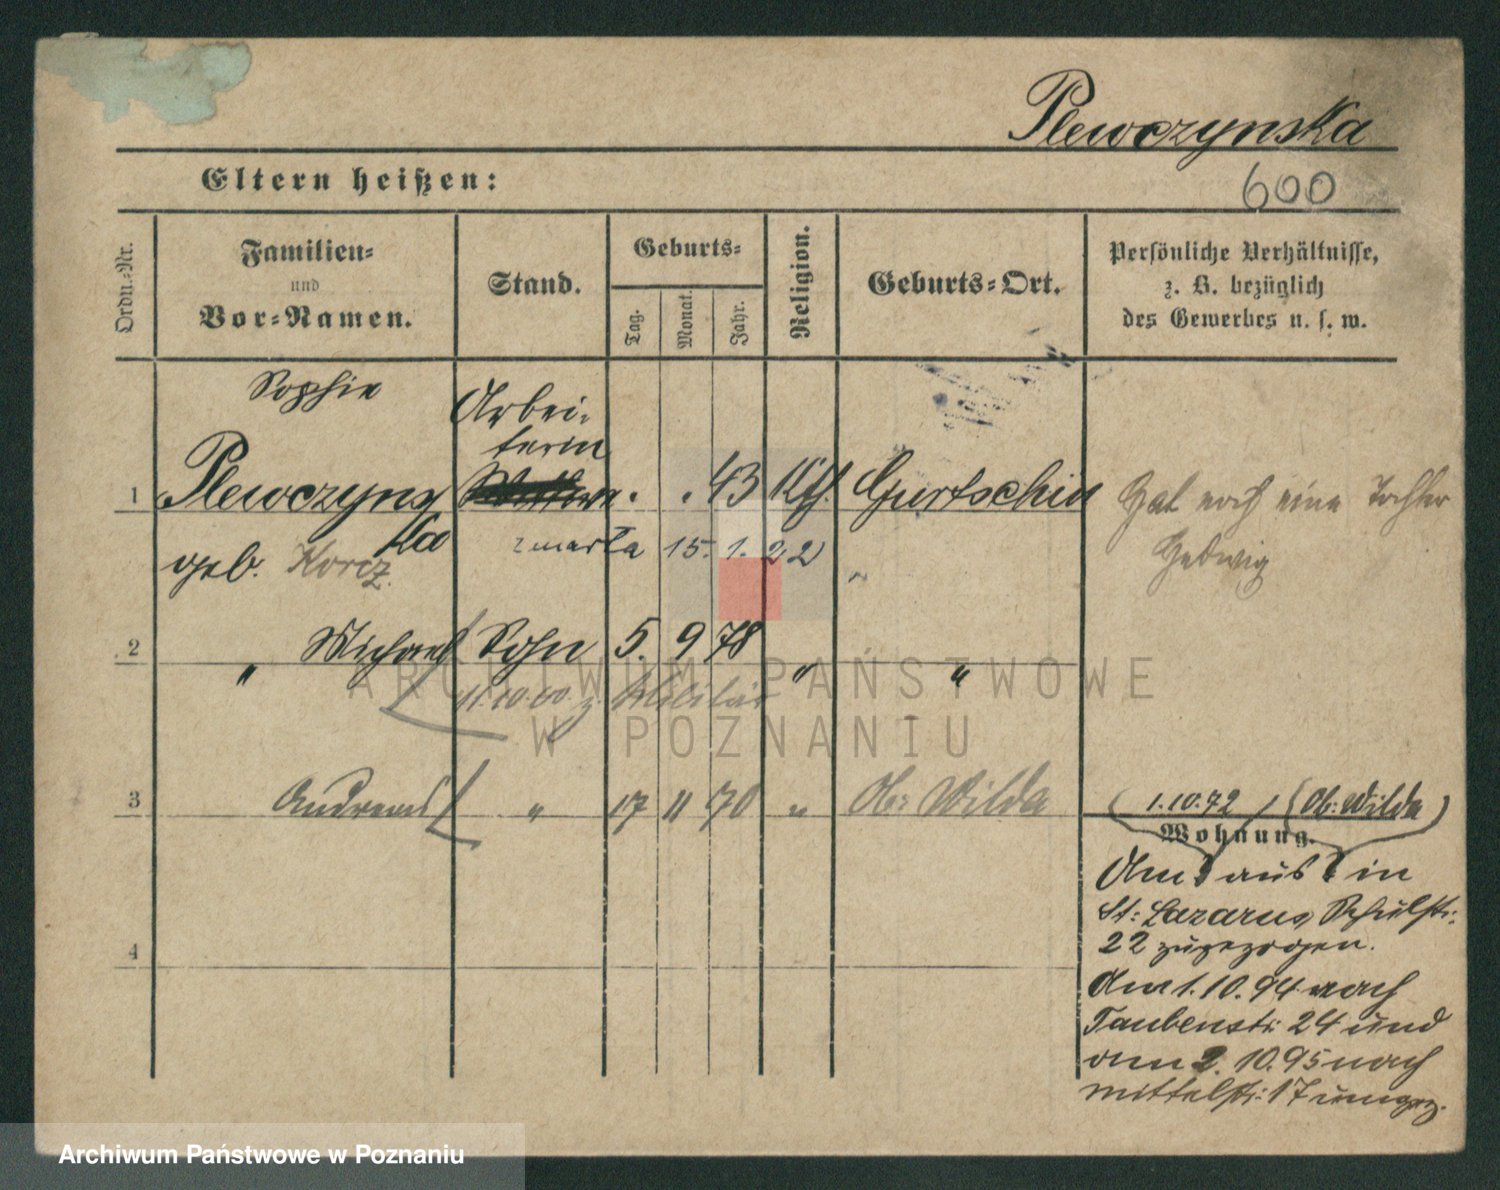 Plewczynska
Eltern heißen:
600
Ordn.-Nr.
Familien-
und
Vor-Namen.
Stand.
Geburts-
Tag.
Monat.
Jahr.
Religion.
Geburts-Ort.
Persönliche Verhältnisse,
z. B. bezüglich
des Gewerbes u. s. w.
Sophie
Arbei-
terin
1 Plewczyns . . 43 Kth. Gurtschin Hat noch eine Tochter
ka
geb. Korcz. zmarła 15. 1. 22 Hedwig
2 " Michael Sohn 5. 9 78 " "
11.10.00 z. Militär
3 Andreas " 17 11 70 " Ob: Wilda
(1.10.72) (Ob: Wilda)
Wohnung.
Am aus in
St: Lazarus, Schulstr:
22 zugezogen.
4
Am 1.10.94 nach
Taubenstr: 24 und
am 2.10.95 nach
Mittelstr: 17 umgez.
ARCHIWUM PAŃSTWOWE
W POZNANIU
Archiwum Państwowe w Poznaniu